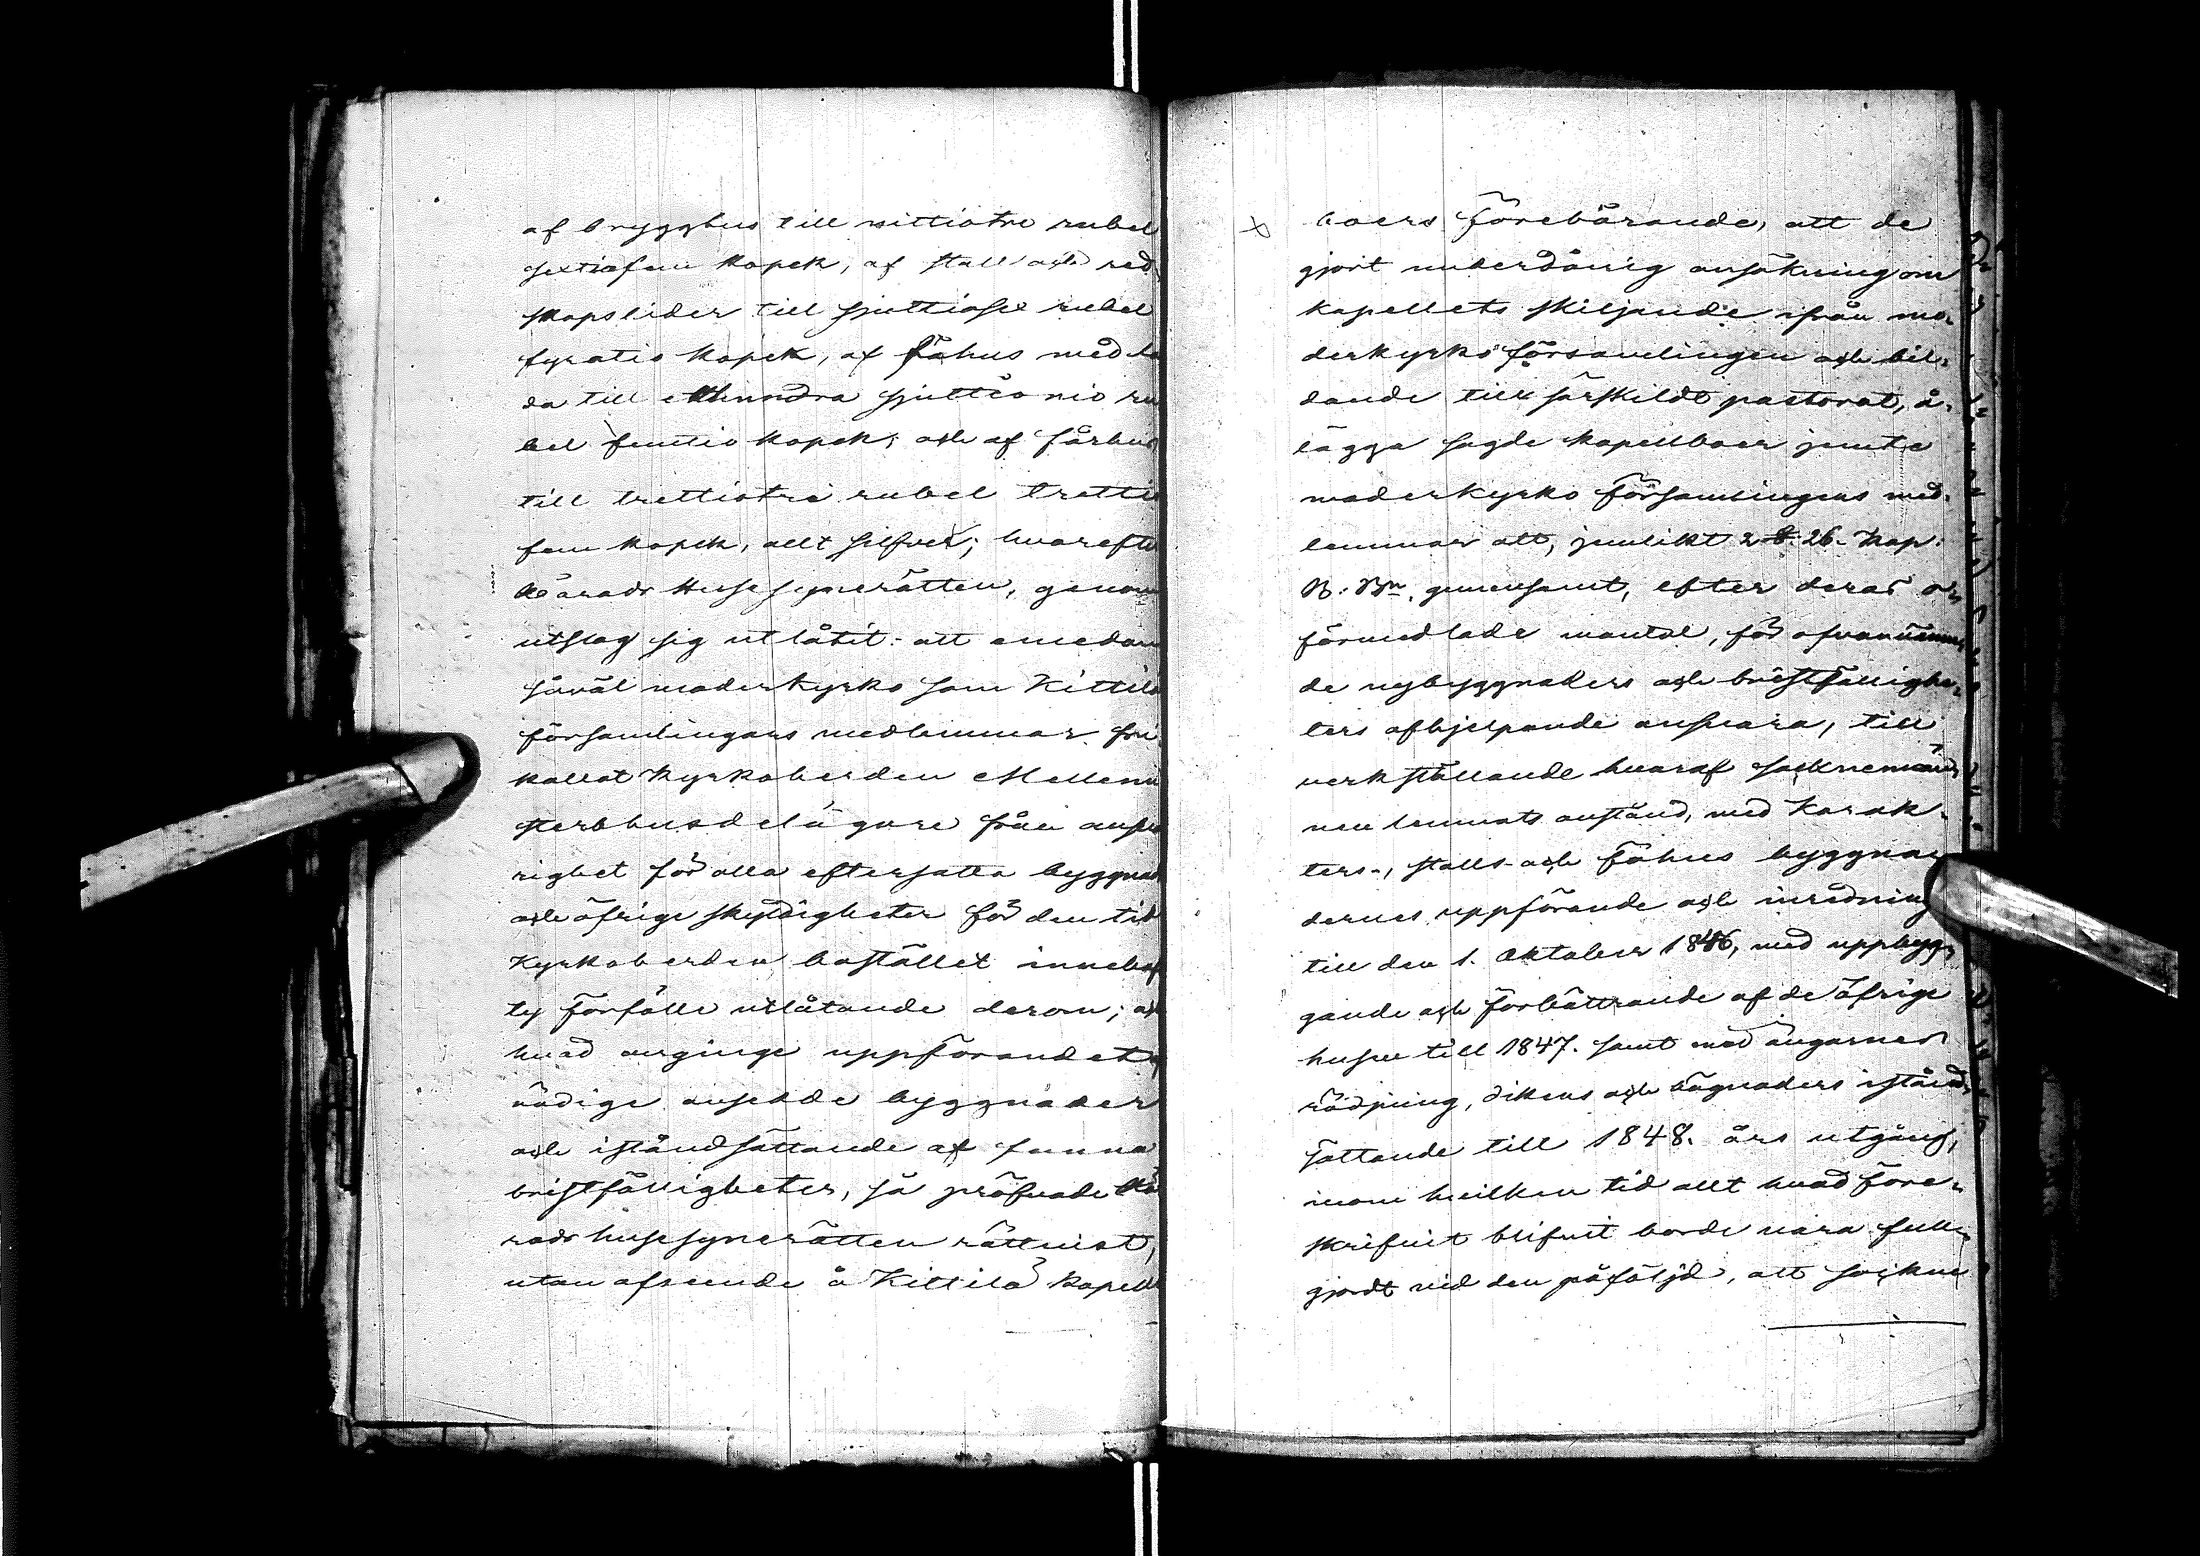 af brygghus till nittiotre rubel
sextiofem kopek, af stall och red
skapslider till sjuttiosex rubel
fyratio kopek, af fähus med la
da till etthundra sjuttio nio ru
bel femtio kopek; och af fårhus
till trettiotre rubel tretti
fem kopek, allt silfver; hvarefter
Härads Husesynerätten, genom
utslag sig utlåtit: att emedan
såväl moderkyrko som Kittilä
församlingars medlemmar fri
kallat Kyrkoherden Mellenii
sterbhusdelägare från ansva
righet för alla eftersatta byggnads
och öfrige skyldigheter för den tid
Kyrkoherden bostället innehaft
ty förfälle utlåtande derom; och
hvad anginge uppförandet af
nödige ansedde byggnader
och iståndsättande af funna
bristfälligheter, så pröfvade Hä
rads husesynerätten rättvist,
utan afseende å Kittilä kapell
boers förebärande, att de
gjort underdånig ansökning om
kapellets skiljande ifrån mo-
derkyrko församlingen och bil-
dande till särskildt pastorat, å-
lägga sagde kapellboer jemte
moderkyrko församlingens med-
lemmar att, jemlikt 2 § 26. Kap.
B. Bn, gemensamt, efter deras o-
förmedlade mantal, för ofvannämn
de nybyggnaders och bristfällighe-
ters afhjelpande ansvara, till
verkställande hvaraf socknemän
nen lemnats anstånd, med Karak-
ters-, stalls- och fähus byggna
dernes uppförande och inredning
till den 1. Oktober 1846, med uppbyg-
gande och förbättrande af de öfrige
husen till 1847. samt med ängarnes
rödjning, dikens och hägnaders istånd-
sättande till 1848. års utgång,
inom hvilken tid allt hvad före-
skrifvit blifvit borde vara full-
gjordt vid den påföljd, att sockne